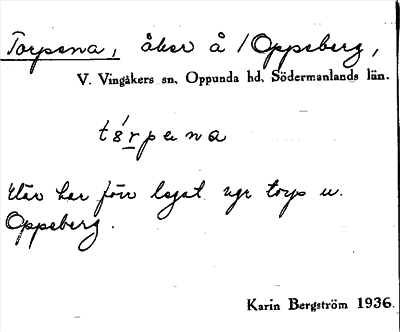 Torpena, åker å /Oppeberg,
V. Vingåkers sn. Oppunda hd. Södermanlands län.
tɜ́rpena
Här har förr legat torp u.
Oppeberg.
Karin Bergström 1936.